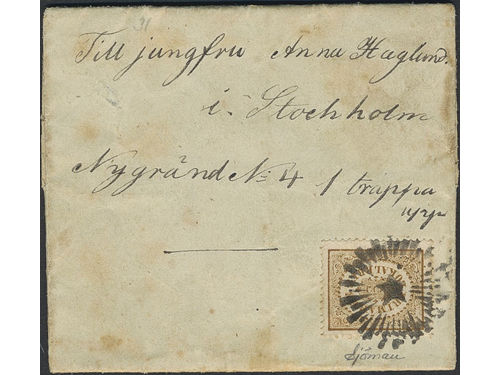 31
Till jungfru Anna Haglund.
i. Stochholm
Nygränd No 4 1 trappa
upp
Sjöman